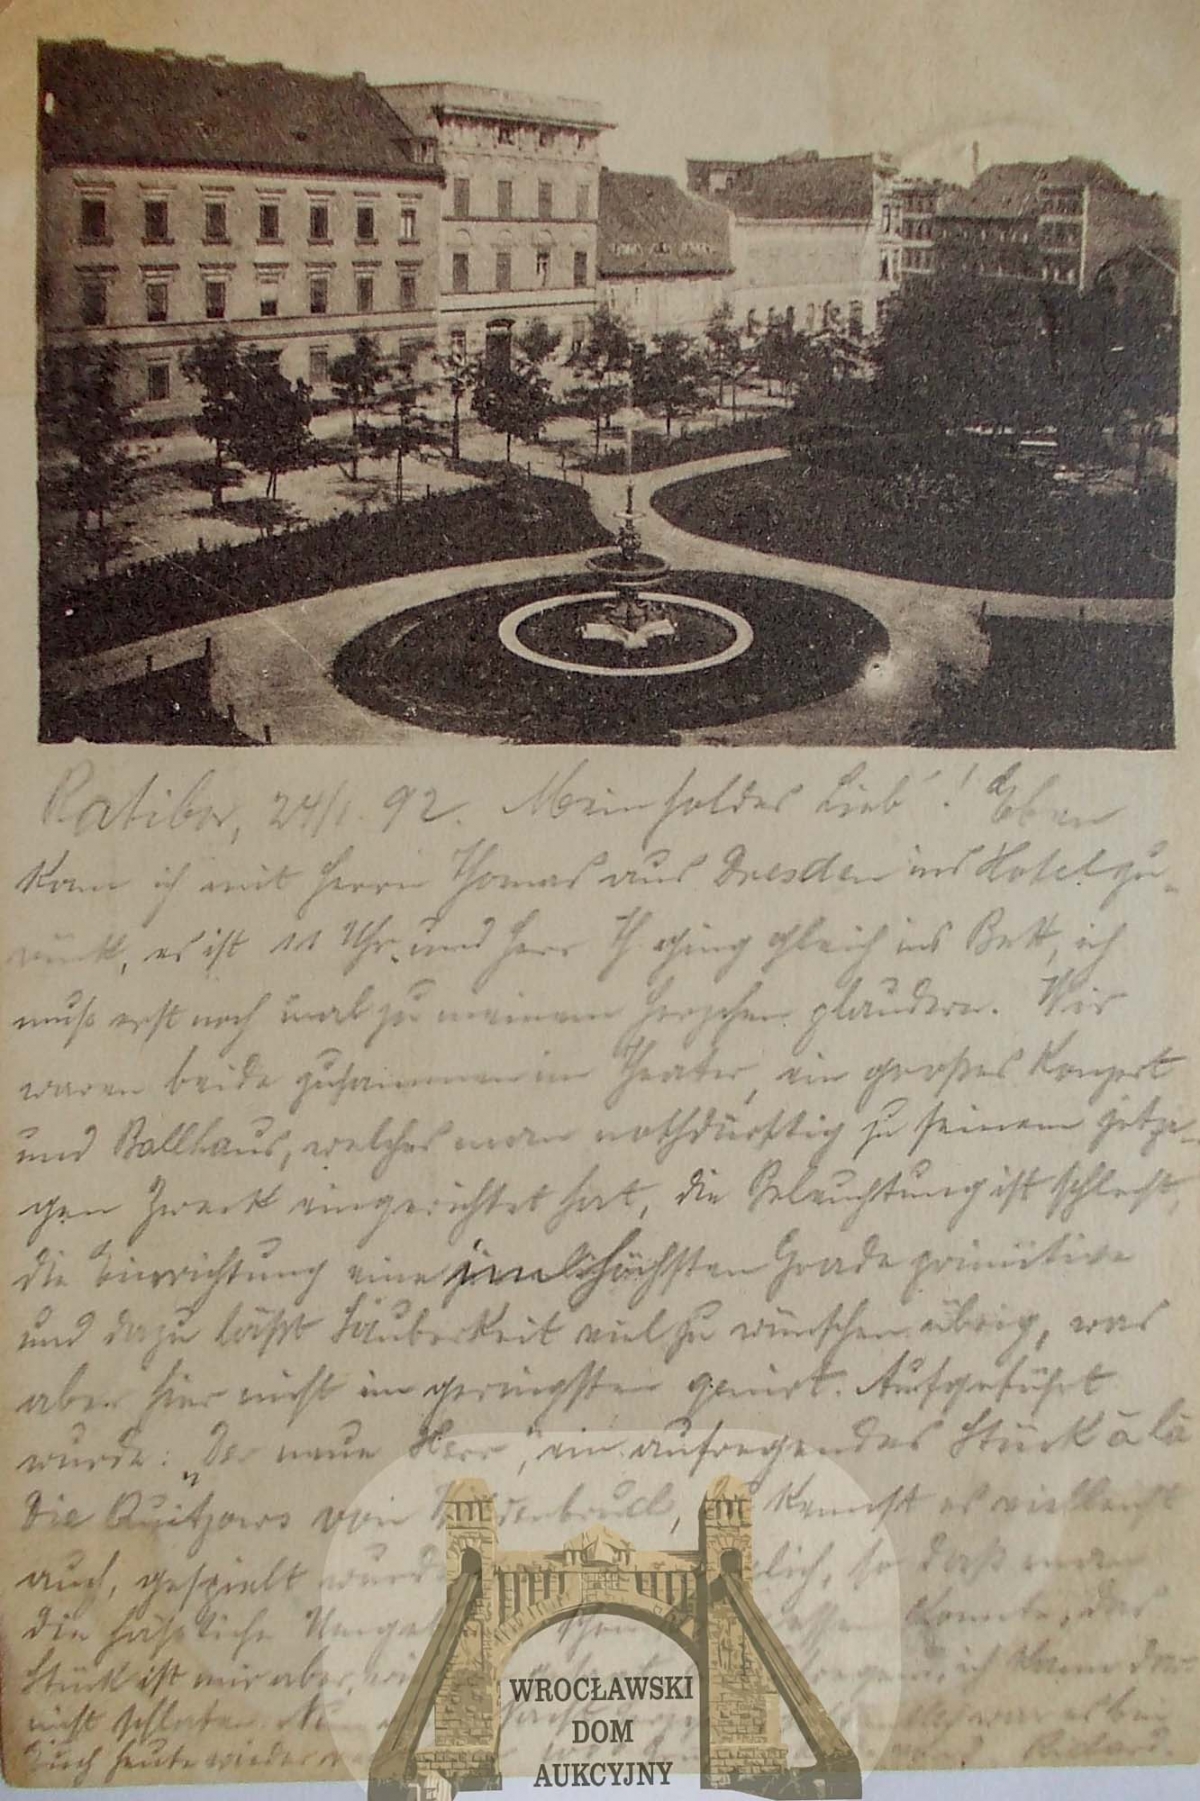 Ratibor, 24/1. 92. Mein holdes Lieb! Eben
kam ich mit Herrn Thomas aus Dresden ins Hotel zu-
rück, es ist 11 Uhr und Herr Th ging gleich ins Bett, ich
muß erst noch mal zu meinem Herzchen plaudern. Wir
waren beide zusammen im Theater, ein großes Konzert
und Ballhaus, welches man nothdürftig zu seinem jetzi-
gen Zweck eingerichtet hat, die Beleuchtung ist schlecht,
die Einrichtung eine im höchsten Grade primitive
und dazu läßt Sauberkeit viel zu wünschen übrig, was
aber hier nicht im geringsten genirt. Aufgeführt
wurde: „Der neue Herr", ein aufregendes Stück à la
die Quitzows von Wildenbruch, kennst es vielleicht
auch, gespielt wurde so daß man
die häßliche konnte, das
Stück ist mir aber ich kann
nicht schlafen. war es bei
Euch heute wieder
WROCŁAWSKI
DOM
AUKCYJNY